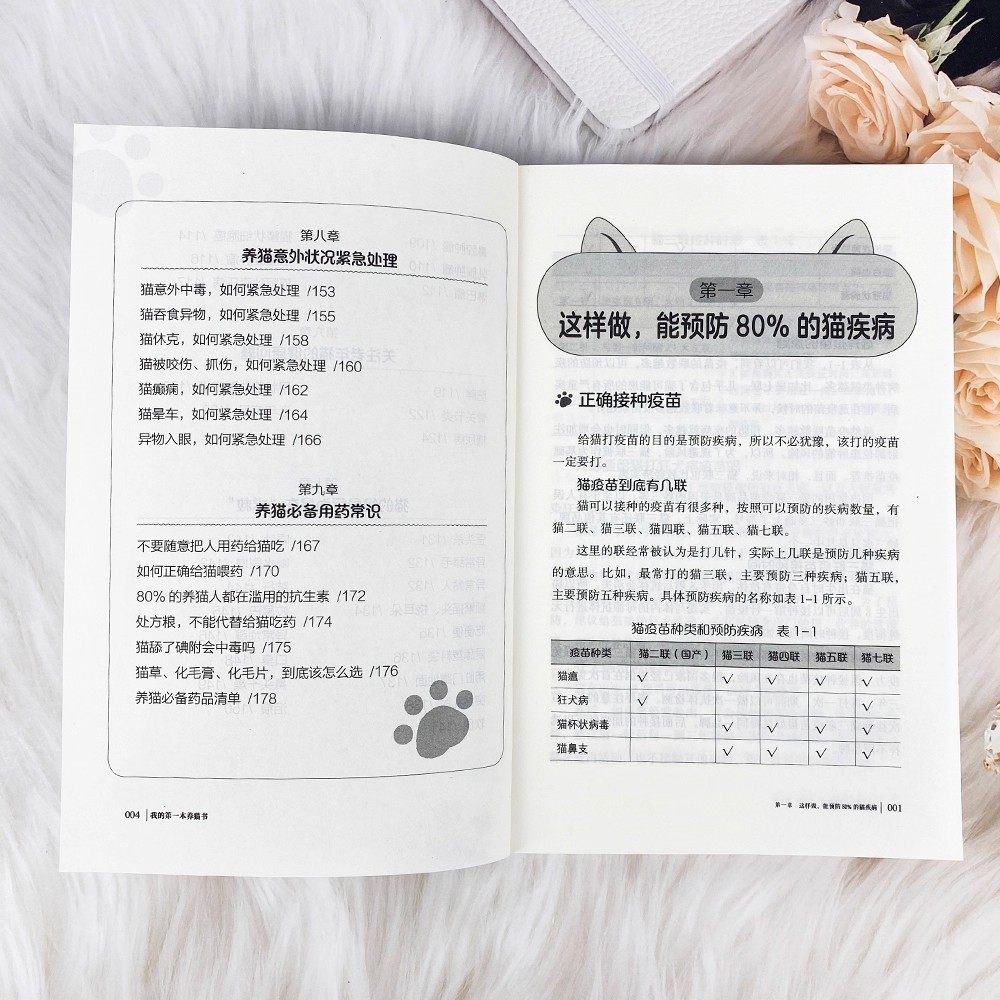 第八章
养猫意外状况紧急处理
猫意外中毒，如何紧急处理 /153
猫吞食异物，如何紧急处理 /155
猫休克，如何紧急处理 /158
猫被咬伤、抓伤，如何紧急处理 /160
猫癫痫，如何紧急处理 /162
猫晕车，如何紧急处理 /164
异物入眼，如何紧急处理 /166
第九章
养猫必备用药常识
不要随意把人用药给猫吃 /167
如何正确给猫喂药 /170
80% 的养猫人都在滥用的抗生素 /172
处方粮，不能代替给猫吃药 /174
猫舔了碘附会中毒吗 /175
猫草、化毛膏、化毛片，到底该怎么选 /176
养猫必备药品清单 /178
004 我的第一本养猫书
第一章
这样做，能预防 80% 的猫疾病
正确接种疫苗
给猫打疫苗的目的是预防疾病，所以不必犹豫，该打的疫苗
一定要打。
猫疫苗到底有几联
猫可以接种的疫苗有很多种，按照可以预防的疾病数量，有
猫二联、猫三联、猫四联、猫五联、猫七联。
这里的联经常被认为是打几针，实际上几联是预防几种疾病
的意思。比如，最常打的猫三联，主要预防三种疾病；猫五联，
主要预防五种疾病。具体预防疾病的名称如表 1-1 所示。
猫疫苗种类和预防疾病 表 1-1
疫苗种类 猫二联（国产） 猫三联 猫四联 猫五联 猫七联
猫瘟 √ √ √ √ √
狂犬病 √ √
猫杯状病毒 √ √ √ √
猫鼻支 √ √ √ √
第一章 这样做，能预防 80% 的猫疾病 001